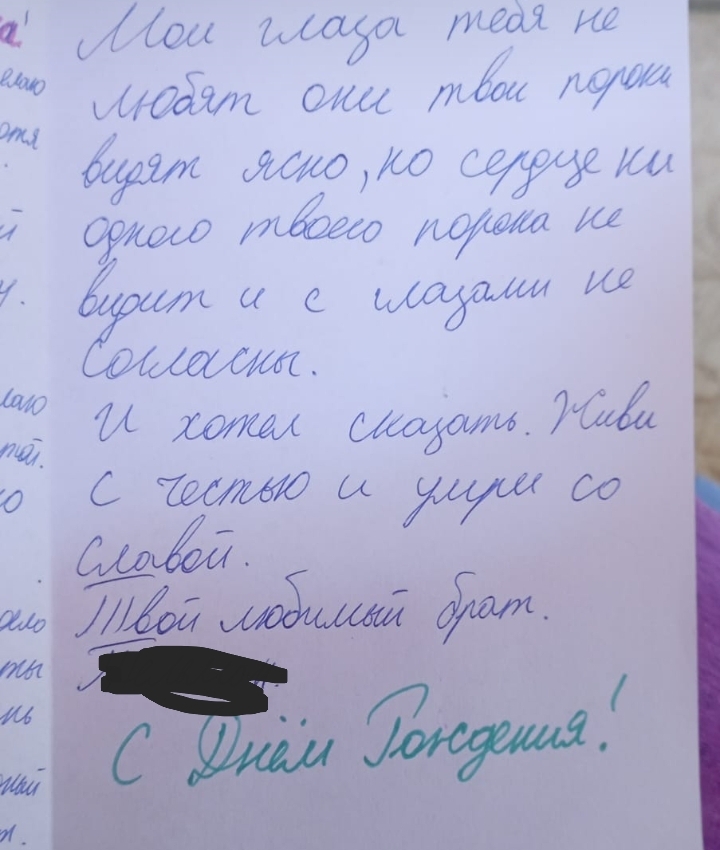 Мои глаза тебя не
любят они твои пороки
видят ясно, но сердце ни
одного твоего порока не
видит и с глазами не
согласны.
И хотел сказать. Живи
с честью и умри со
славой.
Твой любимый брат.
С Днём Рождения!